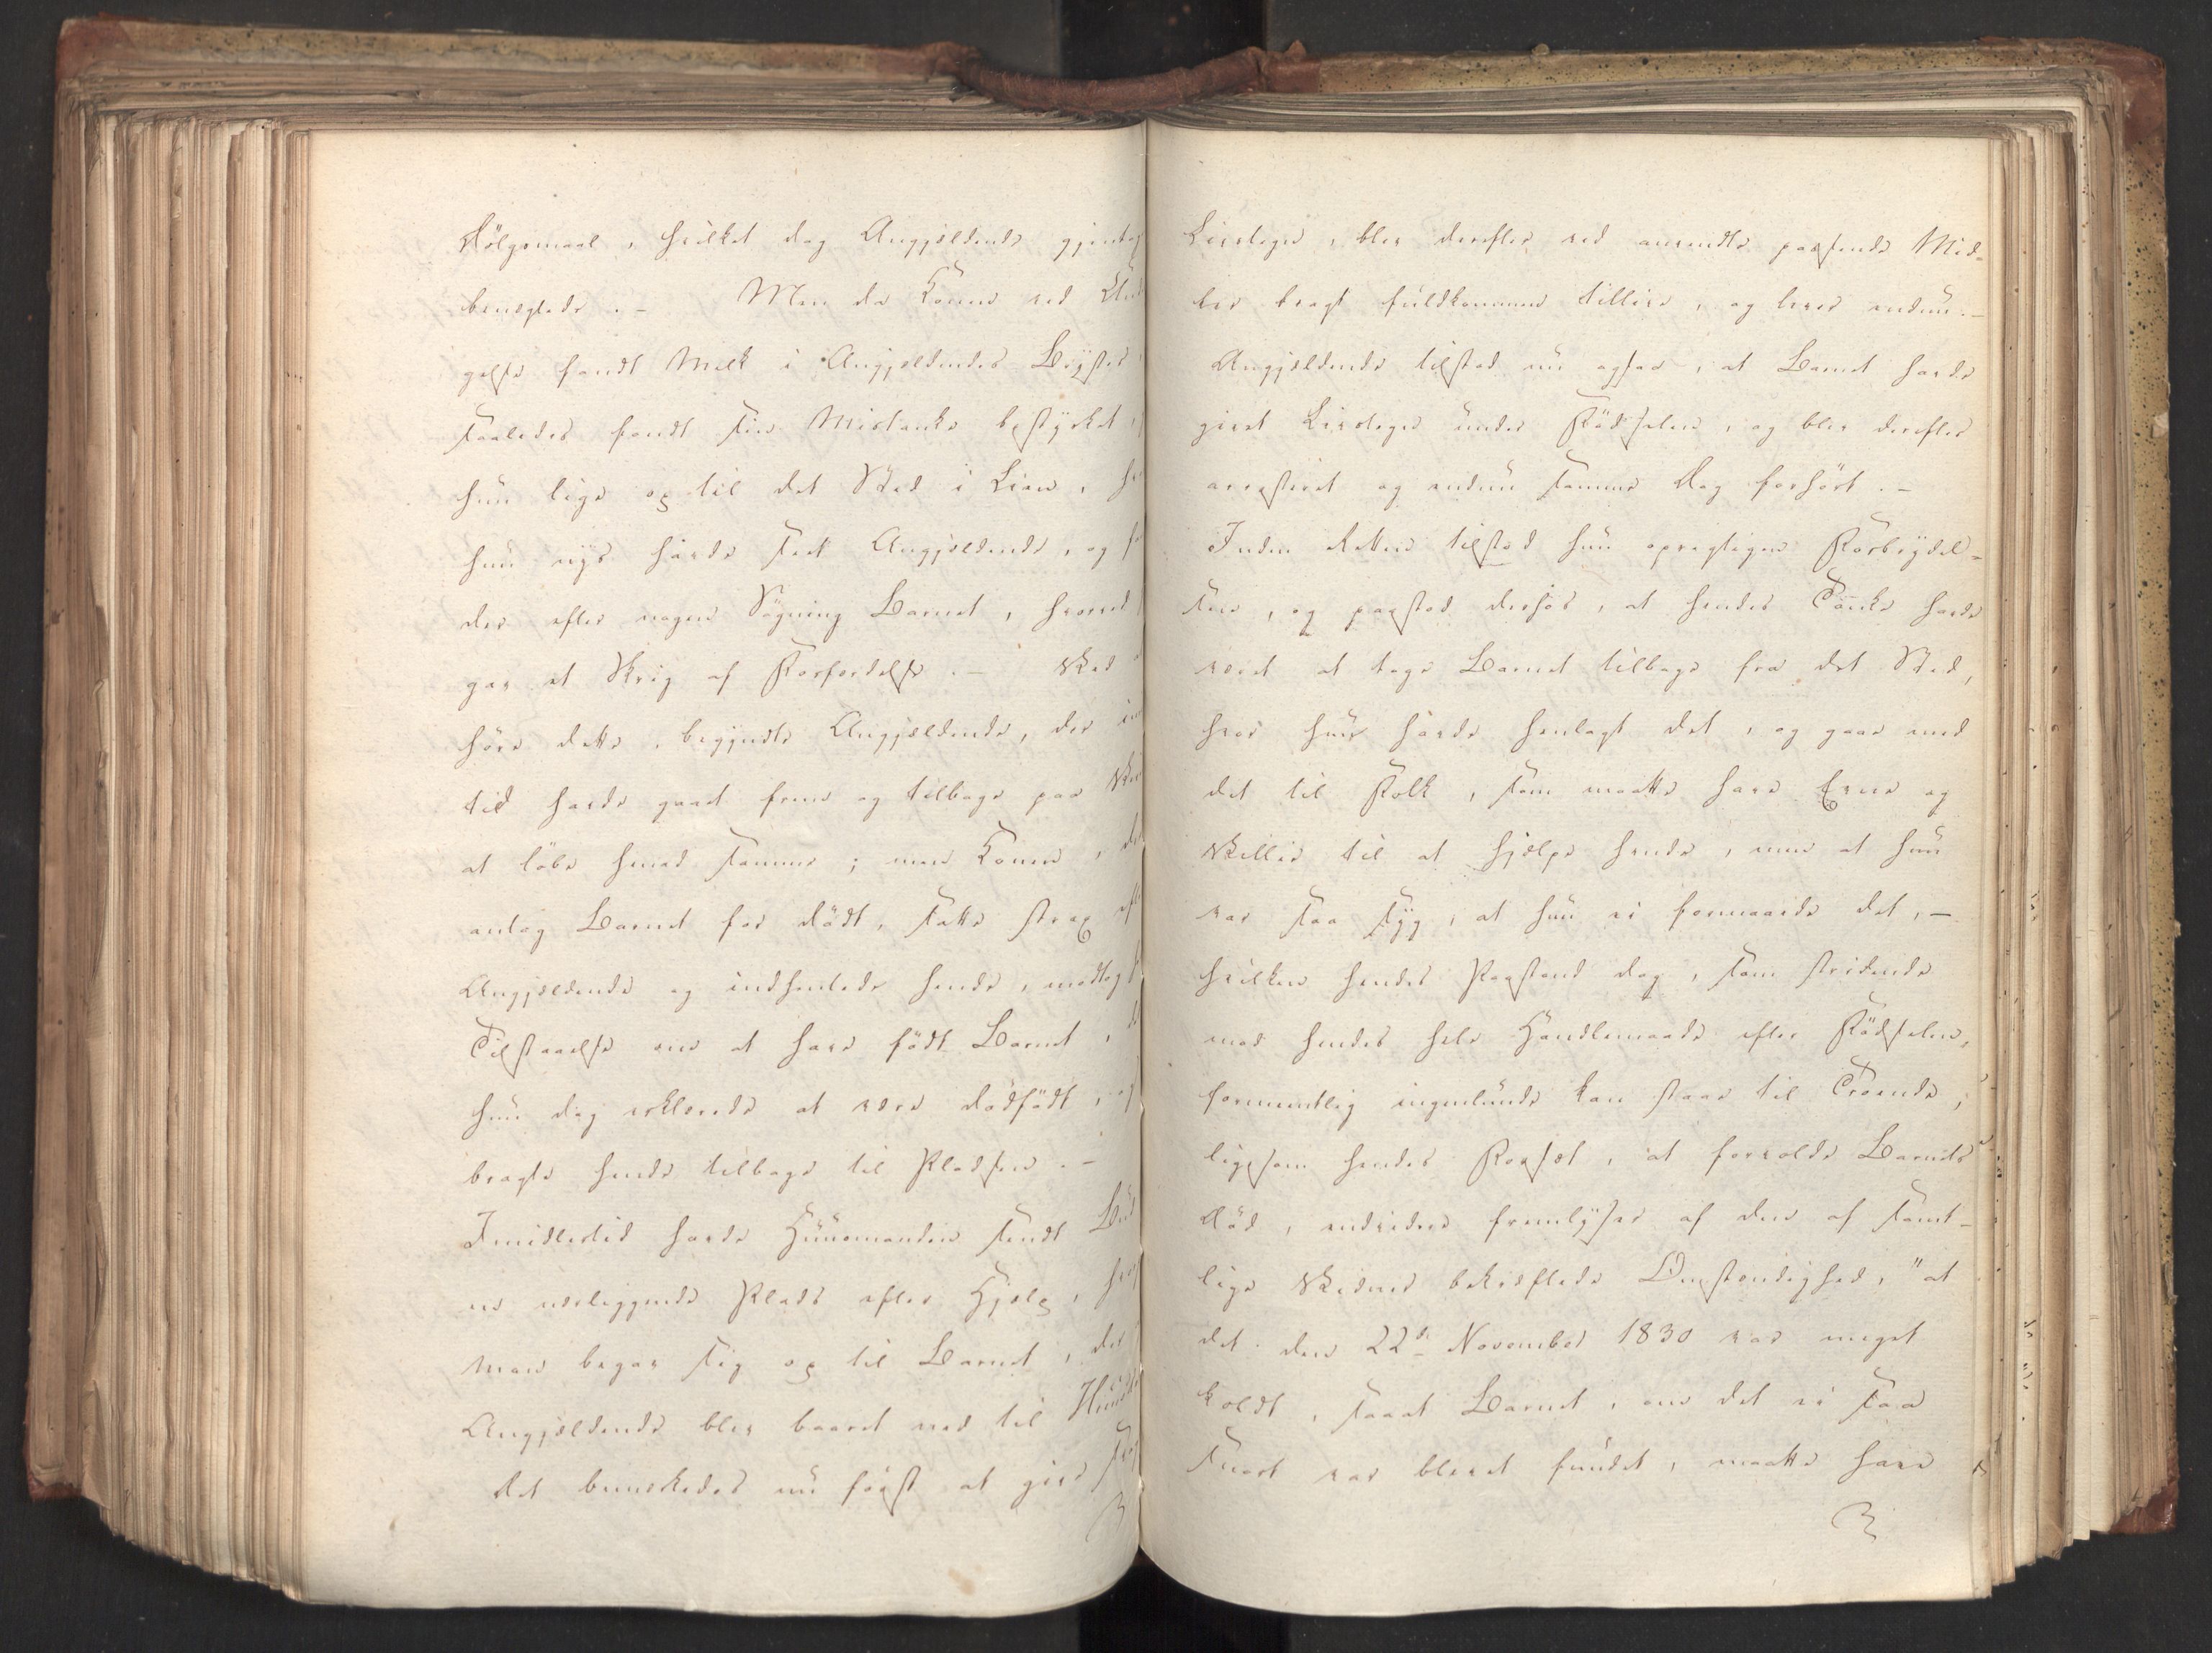 Dölgsmaal, hvilket dog Angjeldende gjentag
benegtede. – Men da Konen ved Und
gelse fandt Melk i Angjeldendes Bryster,
saaledes fandt sin Mistanke bestyrket,
hun lige op til det Sted i Lien, h
hun nys havde seet Angjeldende, og fa
der efter nogen Søgning Barnet, hvorved
gav et Skrig af Forfærdelse. – Ved
høre dette, begyndte Angjeldende, der im
tid havde gaaet frem og tilbage paa Ve
at løbe henad samme; men Konen, de
antog Barnet for dödt, satte strax eft
Angjeldende og indhentede hende, modtog
Tilstaaelse om at have födt Barnet,
hun dog erklærede at være dödfödt, og
bragte hende tilbage til Pladsen. –
Imidlertid havde Huusmanden sendt Bud
en nærliggende Plads efter Hjelp, hvor
man begav sig op til Barnet, der
Angjeldende blev baaret ned til Huus
Det bemærkedes nu först at give
Livstegn, blev derefter ved anvendte passende Mid-
ler bragt fuldkommen tillive, og lever endnu. –
Angjeldende tilstod nu ogsaa, at Barnet havde
givet Livstegn under Födselen, og blev derefter
arresteret og endnu samme Dag forhört. –
Inden Retten tilstod hun oprigtigen Forbrydel-
sen, og paastod derhos, at hendes Tanke havde
været at tage Barnet tilbage fra det Sted,
hvor hun havde henlagt det, og gaae med
det til Folk, som maatte have Evne og
Villie til at hjelpe hende, men at hun
var saa syg, at hun ei formaaede det, –
hvilken hendes Paastand dog, som stridende
mod hendes hele Handlemaade efter Födselen,
formeentlig ingenlunde kan staae til Troende,
ligesom hendes Forsæt, at forvolde Barnets
Död, endvidere fremlyser af den af samt-
lige Vidner bekræftede Omstendighed, "at
det den 22d November 1830 var meget
koldt, saaat Barnet, om det ei saa
snart var blevet fundet, maatte have